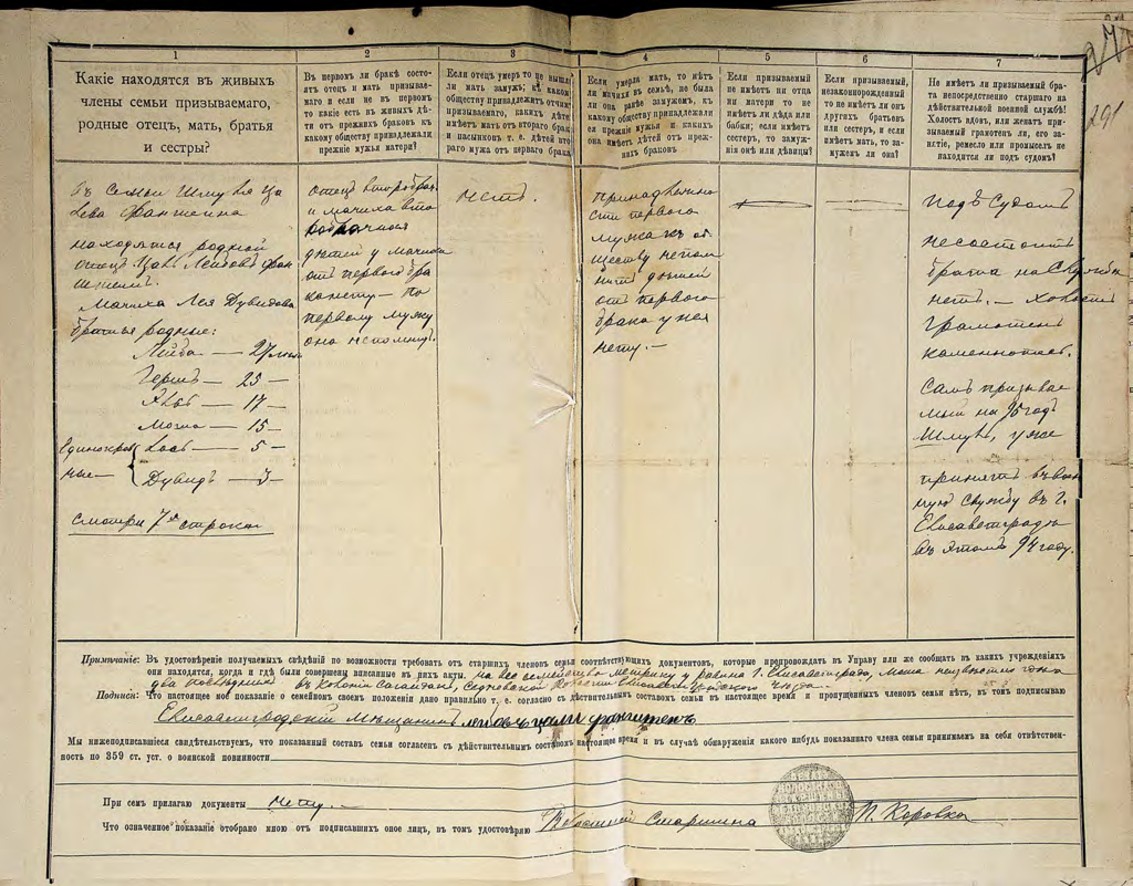 274
291
1
Какіе находятся въ живыхъ
члены семьи призываемаго,
родные отецъ, мать, братья
и сестры?
2
Въ первомъ ли бракѣ состо-
ятъ отецъ и мать призывае-
маго и если не въ первомъ
то какіе есть въ живыхъ дѣ-
ти отъ прежнихъ браковъ къ
какому обществу принадлежали
прежніе мужья матери?
3
Если отецъ умеръ то не вышла
ли мать замужъ; къ какому
обществу принадлежитъ отчимъ
призываемаго, какихъ дѣтей
имѣетъ мать отъ втораго брака
и пасынковъ т. е. дѣтей вто-
раго мужа отъ перваго брака
4
Если умерла мать, то нѣтъ
ли мачихи въ семьѣ, не была
ли она ранѣе замужемъ, къ
какому обществу принадлежали
ея прежніе мужья и какихъ
она имѣетъ дѣтей отъ преж-
нихъ браковъ
5
Если призываемый
не имѣетъ ни отца
ни матери то не
имѣетъ ли дѣда или
бабки; если имѣетъ
сестеръ, то замуж-
нія онѣ или дѣвицы?
6
Если призываемый,
незаконнорожденный
то не имѣетъ ли онъ
другихъ братьевъ
или сестеръ, и если
имѣетъ мать, то за-
мужемъ ли она?
7
Не имѣетъ ли призываемый бра-
та непосредственно старшаго на
дѣйствительной военной службѣ!
Холостъ вдовъ, или женатъ при-
зываемый грамотенъ ли, его за-
нятіе, ремесло или промыселъ не
находится ли подъ судомъ?
въ семьи Шмуля Ца
лева Фанштейна
находятся родной
отецъ Цаль Лейбовъ Фан
штейнъ.
Мачиха Лея Дувидова
братья родные:
Лейба — 27 лѣтъ
Гершъ — 25 —
— 17 —
— 15 —
Единокров
ные — — 5 —
Дувидъ — 3 —
смотри 7ю строку
отецъ второбрач.
и мачиха вто
робрачная
дѣтей у мачихи
отъ первого бра
ка нету — по
первому мужу
она непомнитъ.
нетъ.
принадлежно
сти первого
мужа къ об
ществу непом
нитъ дѣтей
отъ первого
брака у нея
нету. —
подъ судомъ
несостоитъ
брата на службѣ
нетъ. — холостъ
грамотенъ
каменотесъ.
самъ призывае
мый на 95 годъ
Шмуль, уже
принятъ въ воен
ную службу въ г.
Елисаветградѣ
въ этомъ 94 году.
Примѣчаніе: Въ удостовѣреніе получаемыхъ свѣдѣній по возможности требовать отъ старшихъ членовъ семьи соотвѣтствующихъ документовъ, которые препровождать въ Управу или же сообщать въ какихъ учрежденіяхъ
они находятся, когда и гдѣ были совершены вписанные въ нихъ акты. на все семейство метрику у равина г. Елисаветграда,
два послѣднихъ въ Колоніи Сагайдакъ, Седневской волости Елисаветградского уѣзда.
Подписи: Что настоящее мое показаніе о семейномъ своемъ положеніи дано правильно т. е. согласно съ дѣйствительнымъ составомъ семьи въ настоящее время и пропущенныхъ членовъ семьи нѣтъ, въ томъ подписываю
Елисаветградскій Мещанинъ
Мы нижеподписавшіеся свидѣтельствуемъ, что показанный составъ семьи согласенъ съ дѣйствительнымъ составомъ настоящее время и въ случаѣ обнаруженія какого нибудь показаннаго члена семьи принимаемъ на себя отвѣтствен-
ность по 359 ст. уст. о воинской повинности
При семъ прилагаю документы нету. —
Что означенное показаніе отобрано мною отъ подписавшихъ оное лицъ, въ томъ удостовѣряю Волостной Старшина П. Коровка